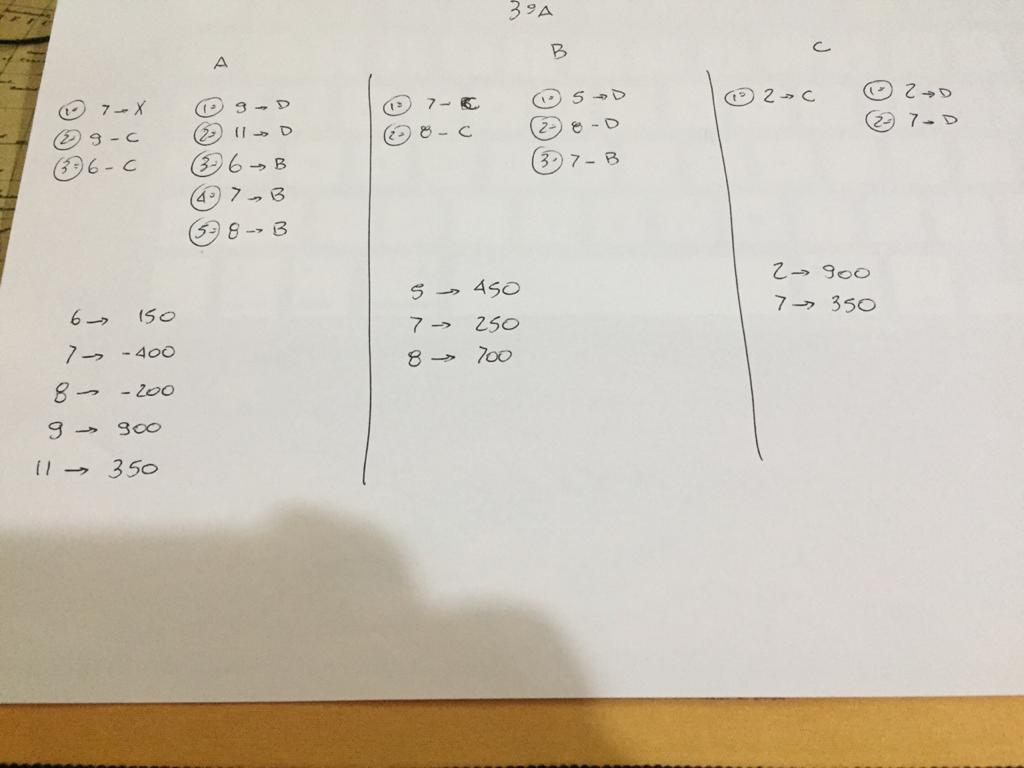 3ºA
A
1º 7→X
2º 9-C
3º 6-C
1º 9→D
2º 11→D
3º 6→B
4º 7→B
5º 8→B
6→ 150
7→ -400
8→ -200
9→ 900
11→ 350
B
1º 7-C
2º 8-C
1º 5→D
2º 8-D
3º 7-B
5→ 450
7→ 250
8→ 700
C
1º 2→C
1º 2→D
2º 7→D
2→ 900
7→ 350